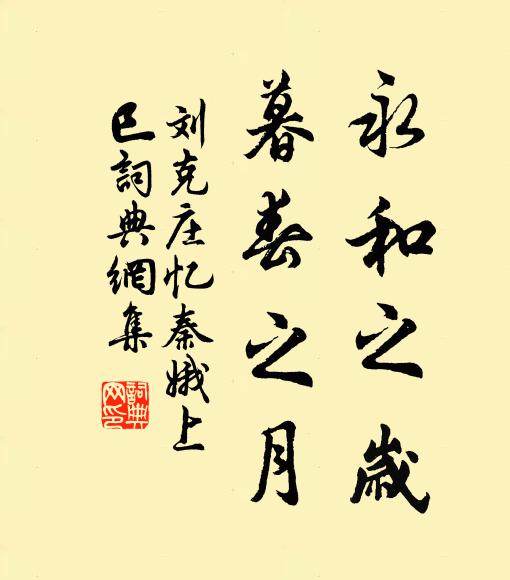 永和之歲
暮春之月
刘克庄忆秦娥上
巳詞典網集
詞典網印